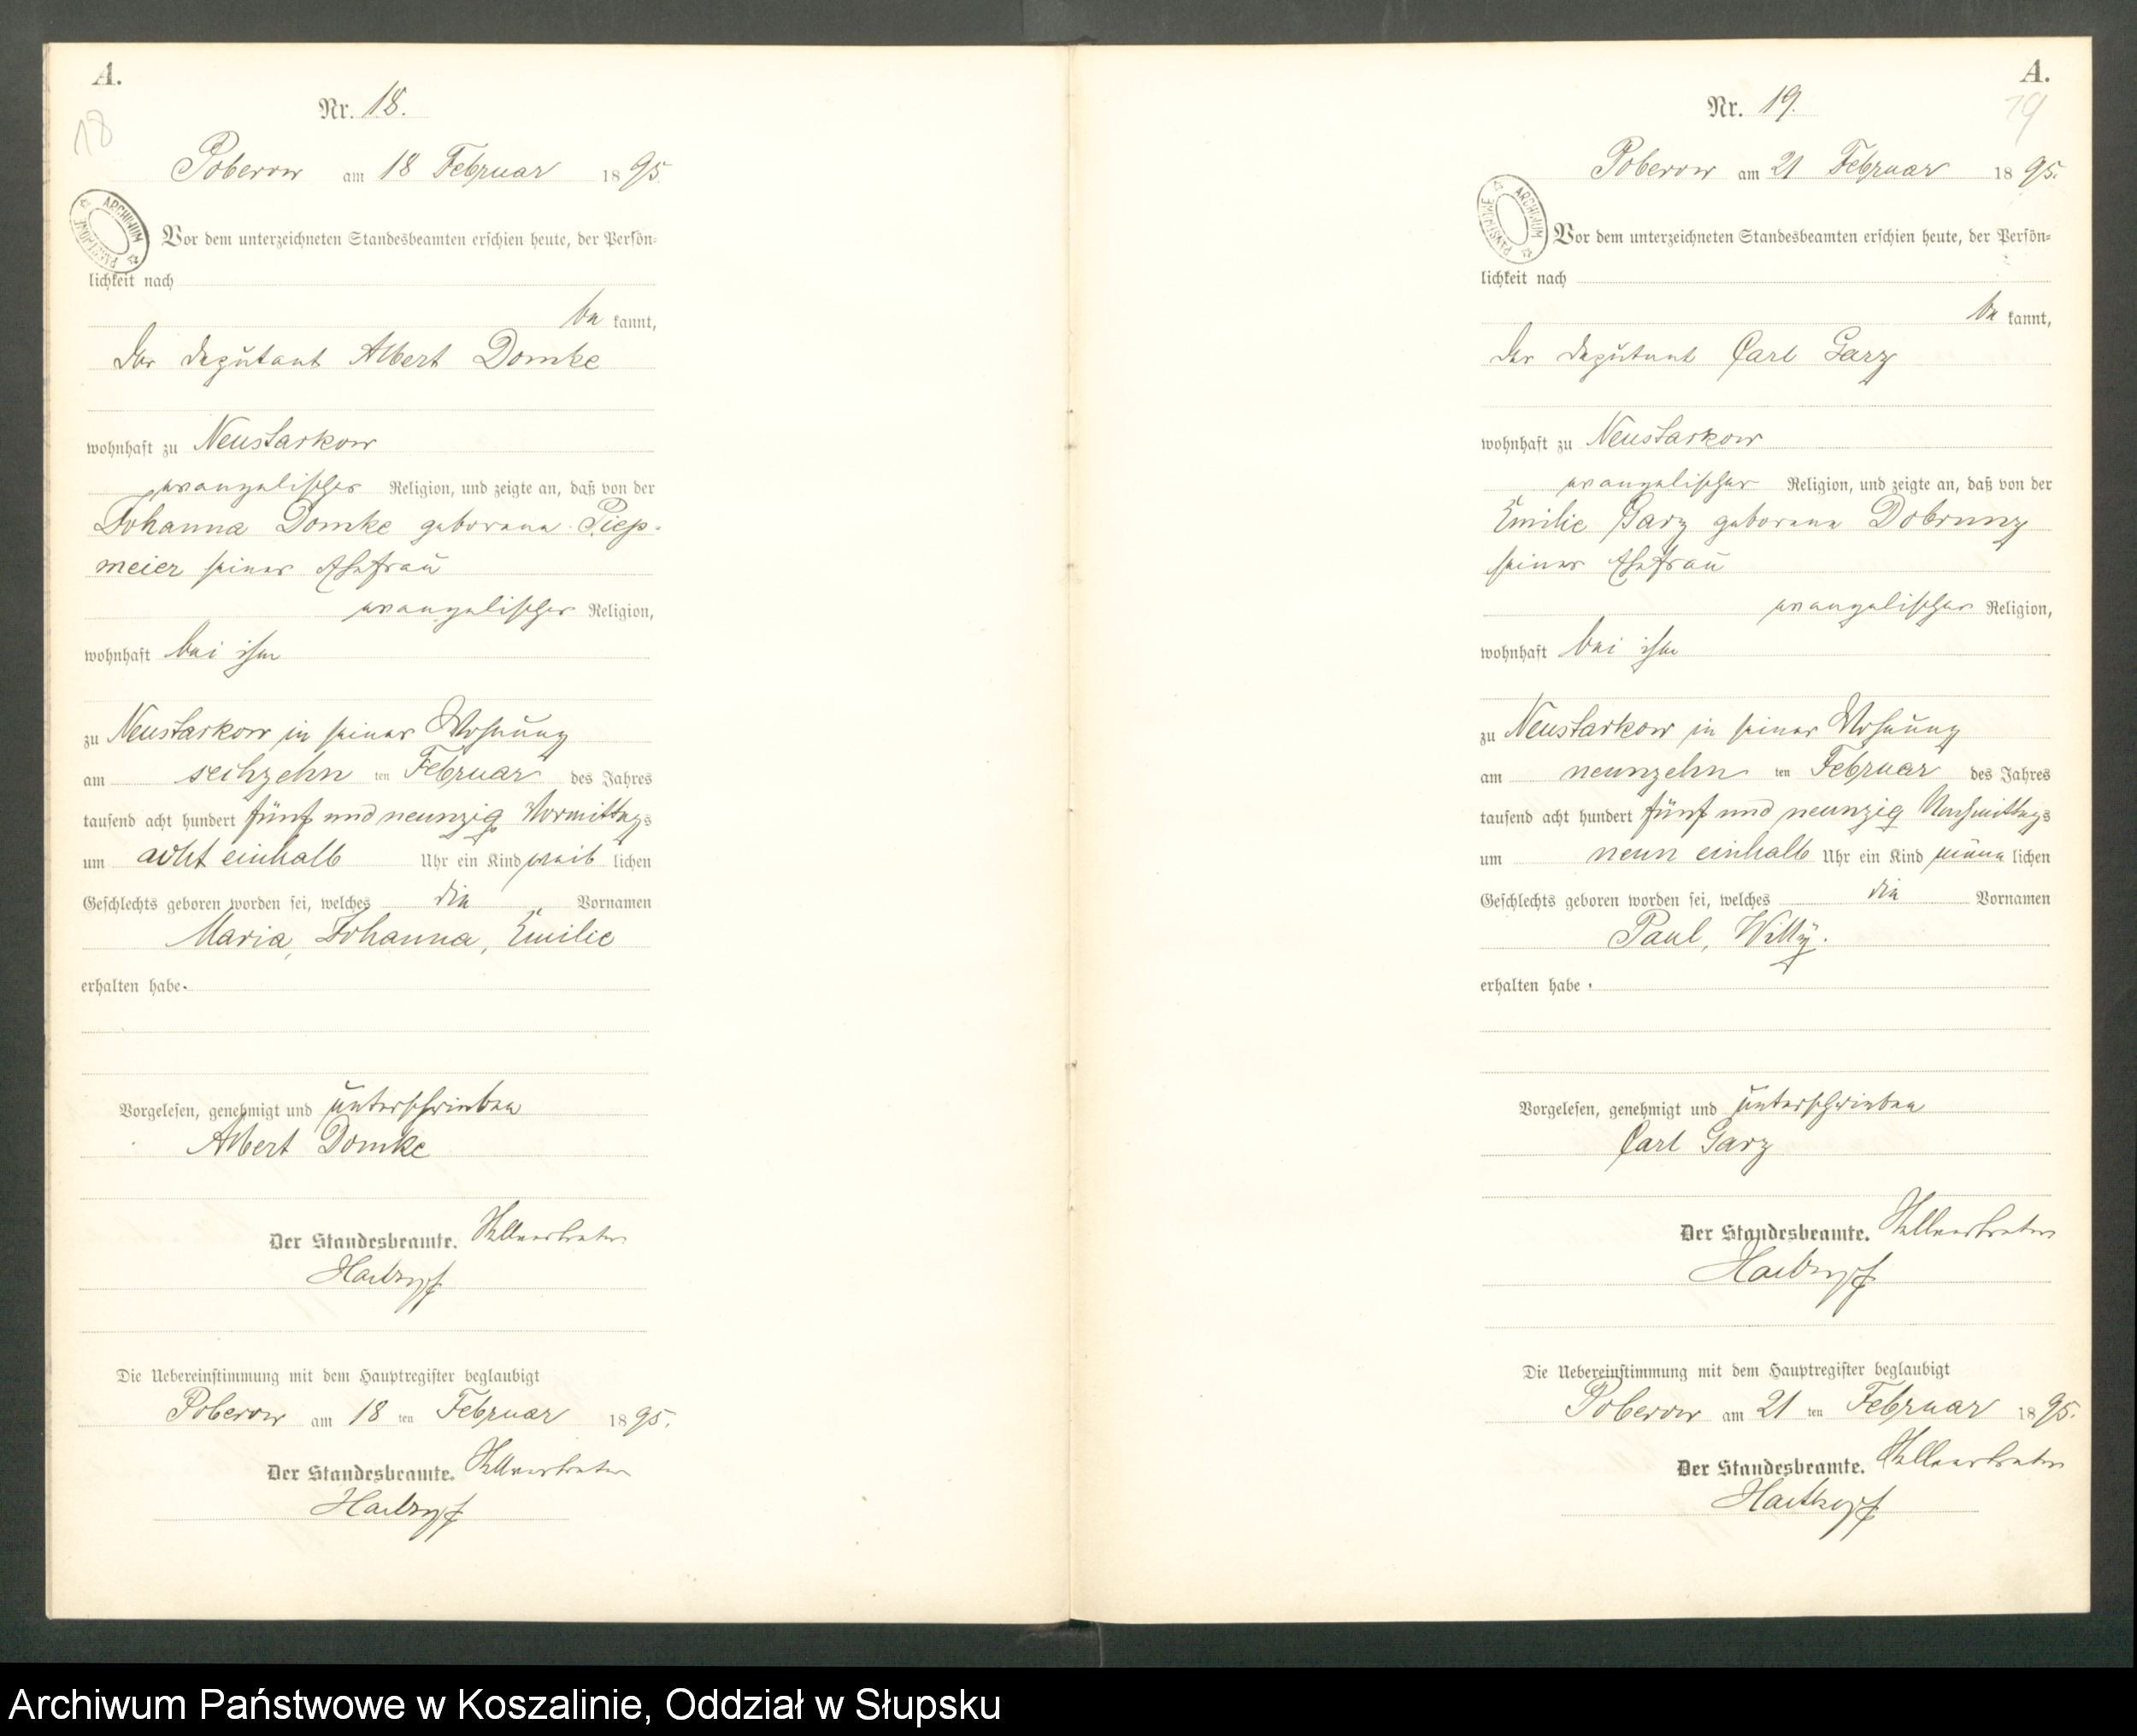 A.
18
Nr. 18.
Poberow am 18 Februar 1895.
ARCHIWUM PAŃSTWOWE
Vor dem unterzeichneten Standesbeamten erschien heute, der Persön-
lichkeit nach
be kannt,
der Deputant Albert Domke
wohnhaft zu Neustarkow
evangelischer Religion, und zeigte an, daß von der
Johanna Domke geborene Piep-
meier seiner Ehefrau
evangelischer Religion,
wohnhaft bei ihm
zu Neustarkow in seiner Wohnung
am sechzehn ten Februar des Jahres
tausend acht hundert fünf und neunzig Vormittags
um acht einhalb Uhr ein Kind weib lichen
Geschlechts geboren worden sei, welches die Vornamen
Maria, Johanna, Emilie
erhalten habe.
Vorgelesen, genehmigt und unterschrieben
Albert Domke
Der Standesbeamte. Stellvertreter
Hartkopf
Die Uebereinstimmung mit dem Hauptregister beglaubigt
Poberow am 18 ten Februar 1895.
Der Standesbeamte. Stellvertreter
Hartkopf
A.
19
Nr. 19.
Poberow am 21 Februar 1895.
ARCHIWUM PAŃSTWOWE
Vor dem unterzeichneten Standesbeamten erschien heute, der Persön-
lichkeit nach
be kannt,
der Deputant Carl Garz
wohnhaft zu Neustarkow
evangelischer Religion, und zeigte an, daß von der
Emilie Garz geborene Dobrunz
seiner Ehefrau
evangelischer Religion,
wohnhaft bei ihm
zu Neustarkow in seiner Wohnung
am neunzehn ten Februar des Jahres
tausend acht hundert fünf und neunzig Nachmittags
um neun einhalb Uhr ein Kind männ lichen
Geschlechts geboren worden sei, welches die Vornamen
Paul, Willy.
erhalten habe.
Vorgelesen, genehmigt und unterschrieben
Carl Garz
Der Standesbeamte. Stellvertreter
Hartkopf
Die Uebereinstimmung mit dem Hauptregister beglaubigt
Poberow am 21 ten Februar 1895.
Der Standesbeamte. Stellvertreter
Hartkopf
Archiwum Państwowe w Koszalinie, Oddział w Słupsku